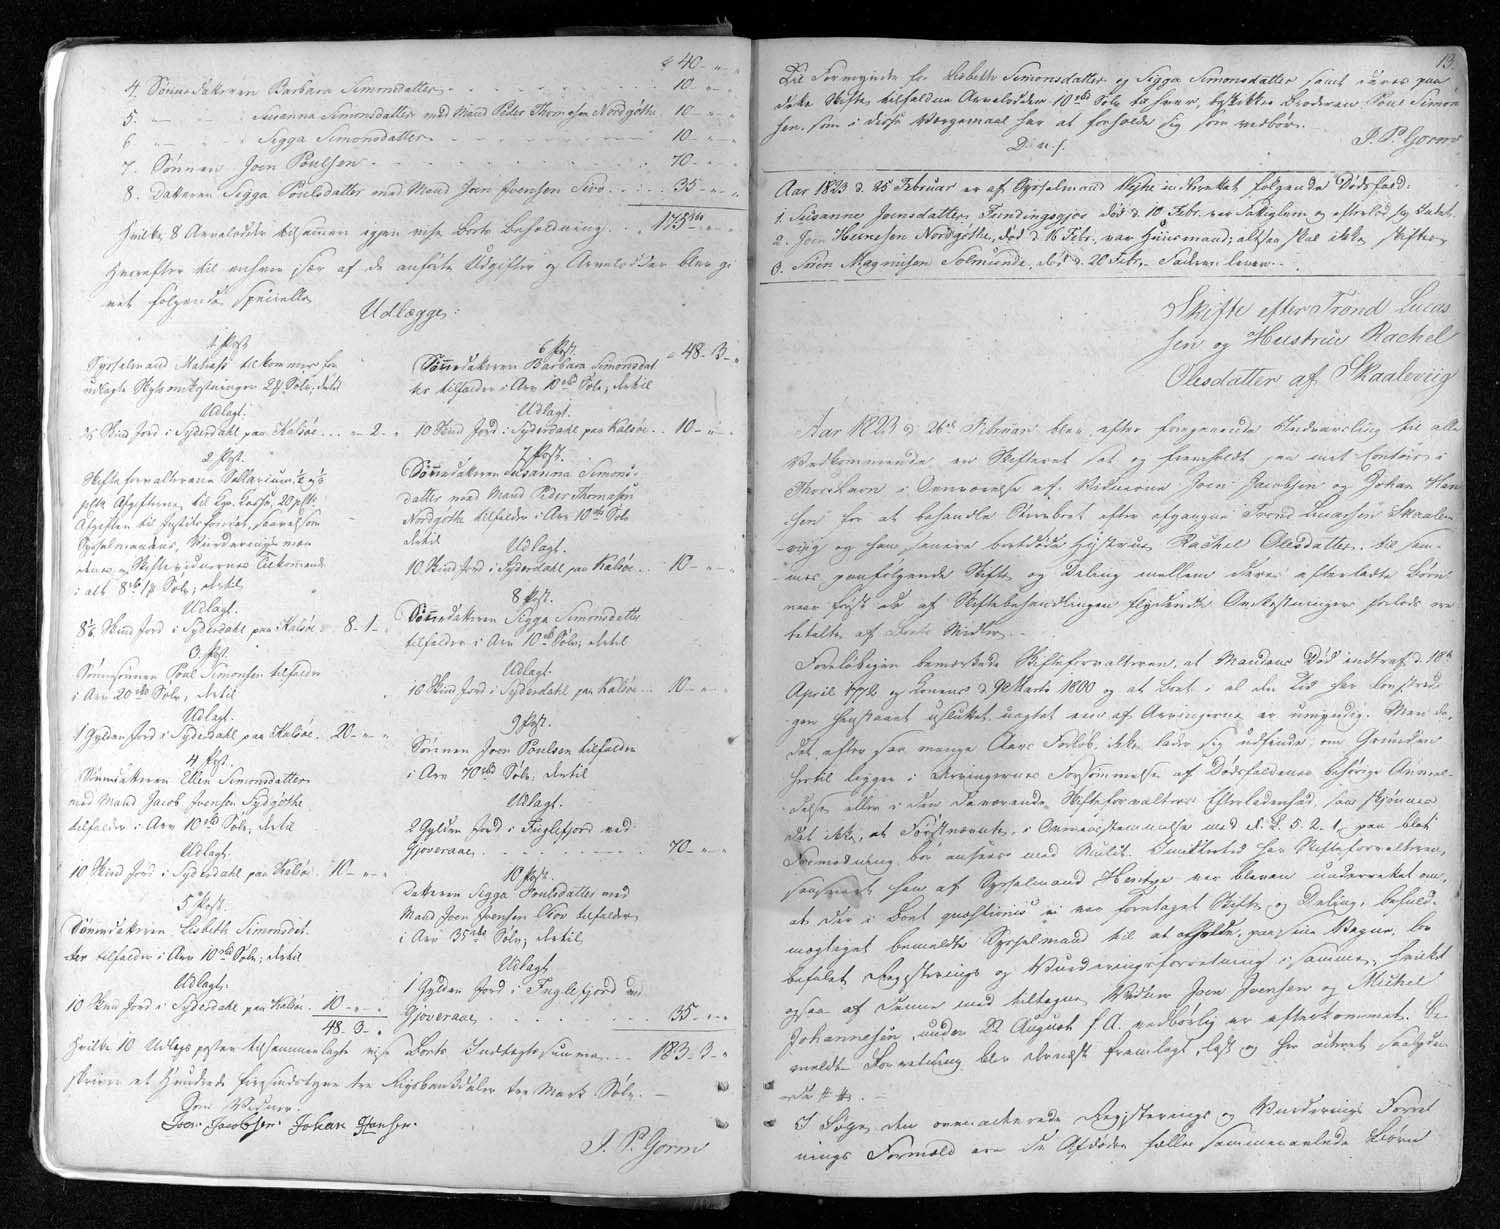 ¢ 40 - " - "
4. Sönnedatteren Barbara Simonsdatter 10 - " - "
5. — " — Susanna Simonsdatter med Mand Peder Thomasen Nordgøthe 10 - " - "
6 " — " Sigga Simonsdatter 10 - " - "
7. Sönnen Joen Poulsen 70 - " - "
8. Datteren Sigga Poulsdatter med Mand Joen Joensen 35 - " - "
Hvilke 8 Arvelodder tilsammen igjen vise Boets Beholdning 175 - " - "
Hvorefter til enhver især af de anførte Udgifter og Arvelodder blev gi
vet følgende specielle
Udlægge:
1 Post.
Sysselmand tilkommer for
udlagte Skydsomkostninger 2 Sölv, dertil
Udlagt.
2½ Skind Jord i Syderdahl paa Kalsöe - 2 -
2 Post.
Skifteforvalterens Sallarium
Afgifterne til Kgs. Casse, 20
Afgiften til Justitsfondet, saavelsom
Sysselmandens, Vurderingsmæn
denes og Skiftevidnernes Tilkommende
i alt 8 1 Sölv; dertil
Udlagt.
Skind Jord i Syderdahl paa Kalsöe 8 - 1 -
3. Post.
Sönnesönnen Poul Simonsen tilfalder
i Arv 20 Sölv, dertil
Udlagt.
1 Gylden Jord i Syderdahl paa Kalsöe. 20 - " - "
4 Post.
Sönnedatteren Ellen Simonsdatter
med Mand Jacob Joensen Sydgøthe
tilfalder i Arv 10 Sölv, dertil
Udlagt.
10 Skind Jord i Syderdahl paa Kalsöe 10 - " - "
5 Post.
Sönnedatteren Lisbeth Simonsdat-
ter tilfalder i Arv 10 Sölv; dertil
Udlagt.
10 Skind Jord i Syderdahl paa Kalsöe. 10 - " - "
48 - 3 - "
48 - 3 - "
6 Post.
Sönnedatteren Barbara Simonsdat
ter tilfalder i Arv 10 Sölv; dertil
Udlagt.
10 Skind Jord i Syderdahl paa Kalsöe 10 - " - "
7 Post.
Sönnedatteren Susanna Simons-
datter med Mand Peder Thomasen
Nordgøthe tilfalder i Arv 10 Sölv
dertil
Udlagt.
10 Skind Jord i Syderdahl paa Kalsöe 10 - " - "
8 Post.
Sönnedatteren Sigga Simonsdatter
tilfalder i Arv 10 Sölv; dertil
Udlagt
10 Skind Jord i Syderdahl paa Kalsöe 10 - " - "
9 Post.
Sönnen Joen Poulsen tilfalder
i Arv 70 Sölv; dertil
Udlagt.
2 Gylden Jord i Fuglefjord ved
Gjoveraae 70 - " - "
10 Post.
Datteren Sigga Poulsdatter med
Mand Joen Joensen tilfalder
i Arv 35 Sölv; dertil
Udlagt
1 Gylden Jord i Fuglefjord ved
Gjoveraae 35 - " - "
Hvilke 10 Udlægsposter tilsammenlagte vise Boets Indtægtssumma 183 - 3 - "
skriver et Hundrede firesindstyve tre Rigsbankdaler tre Mark Sölv. —
Som Vidner:
Joen Jacobsen. Johan Hansen.
J. P. Gorm
13.
Til Formynder for Lisbeth Simonsdatter og Sigga Simonsdatter samt deres paa
dette Skifte tilfaldne Arvelodder 10 Sölv til hver, beskikkes Broderen Poul Simon
sen, som i disse Værgemaal har at forholde sig som vedbör.
D. u. s. J. P. Gorm
Aar 1823 d. 25 Februar er af Sysselmand indberettet følgende Dödsfald:
1. Susanne Joensdatter Fundingsgjov död d. 10 Febr. var Fattiglem og efterlod sig Intet.
2. Joen Heinesen Nordgøthe, död d. 16 Febr., var Huusmand; altsaa skal ikke skiftes
3. Sören Magnusen Solmunde, död d. 20 Febr. Faderen lever. -
Skifte efter Trond Lucas
sen og Hustrue Rachel
Olesdatter af Skaalevig
Aar 1823 d. 26 Februar blev, efter foregaaende Indvarsling til alle
Vedkommende en Skifteret sat og fremholdt paa mit Contoir i
Thorshavn i Overværelse af Vidnerne Joen Jacobsen og Johan Han
sen for at behandle Stervboet efter afgangne Trond Lucassen Skaale-
vig og hans senere bortdöde Hustrue Rachel Olesdatter, til sam-
mes paafølgende Skifte og Deling mellem deres efterladte Börn
naar först de af Skiftebehandlingen flydende Omkostninger forlods ere
betalte af Boets Midler. -
Foreløbigen bemærkede Skifteforvalteren, at Mandens Död indtraf d. 18
April og Konens d. 9 Marts 1800 og at Boet i al den Tid har
henstaaet uskiftet, uagtet een af Arvingerne er umyndig. Men da
det efter saa mange Aars Forløb, ikke lader sig udfinde, om Grunden
hertil ligger i Arvingernes Forsømmelse af Dödsfaldenes behörige Anmel-
delse eller i den daværende Skifteforvalters Efterladenhed, saa skjönnes
det ikke, at Förstnævnte, i Overeensstemmelse med D. L. 5. 2. 1, paa blot
Formodning bör ansees med Mulct. Imidlertid har Skifteforvalteren,
saasnart han af Sysselmand var bleven underrettet om,
at der i Boet ei var foretaget Skifte og Deling, befuld-
mægtiget bemeldte Sysselmand til at afholde, paa sine Vegne, be
befalet Registerings og Vurderingsforretning i samme, hvilket
ogsaa af denne med tiltagne Vidner Joen Joensen og Michel
Johannesen, under 22 August f. A. vedbörlig er efterkommet. Be-
meldte Forretning blev dernæst fremlagt, læst og her acteret saalyden-
de # #. —
I Følge den ovenacterede Registerings og Vurderings Forret
nings Formeld ere de Afdödes fælles sammenavlede Börn